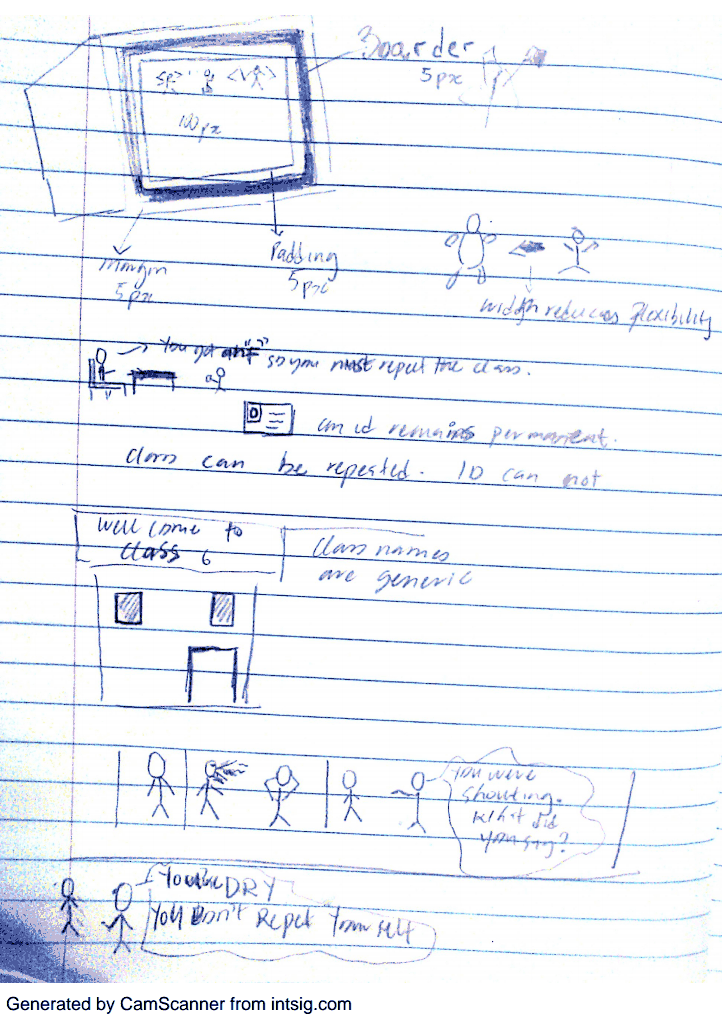 Boarder
5px
<p>
100px
Margin
5px
Padding
5px
width reduces flexibility
You got an "F" so you must repeat the class.
an id remains permanent.
class can be repeated. ID can not
Well come to
class 6
class names
are generic
You were
shouting.
What did
you say?
You're DRY
You Don't Repet Yourself
Generated by CamScanner from intsig.com